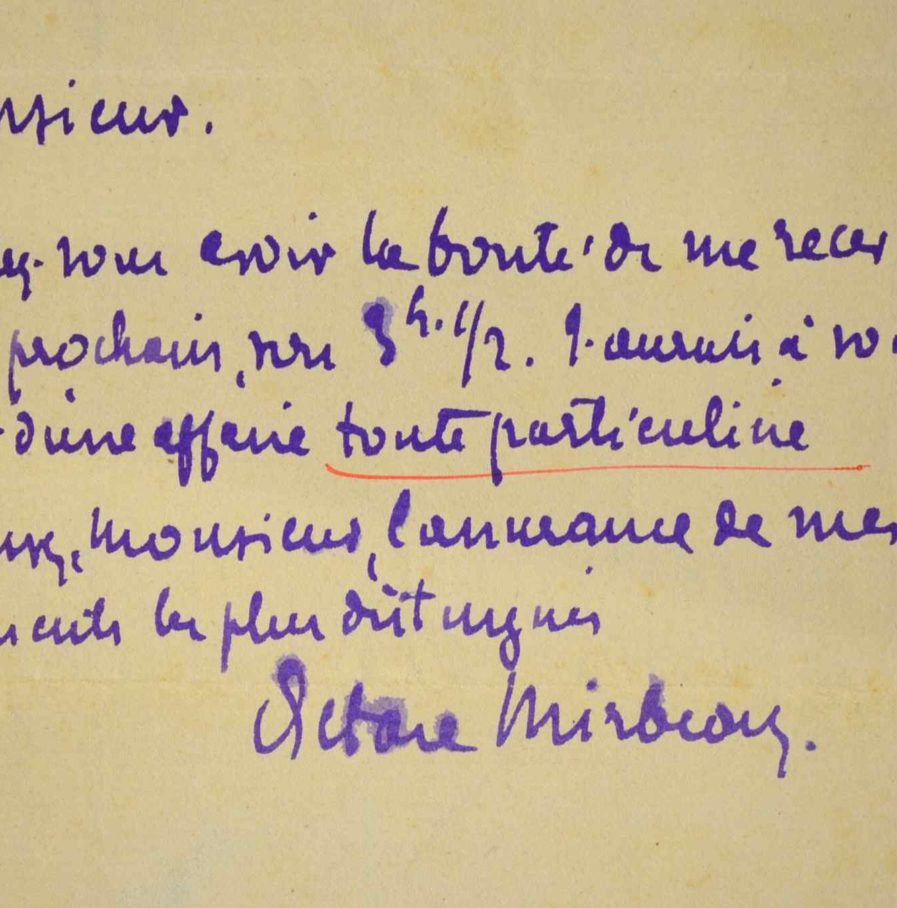 nsieur.
ez-vous avoir la bonté de me recev
prochain, vers 3h. 1/2. J'aurais à vo
d'une affaire toute particulière
Monsieur, l'assurance de mes
ments les plus distingués
Octave Mirbeau.